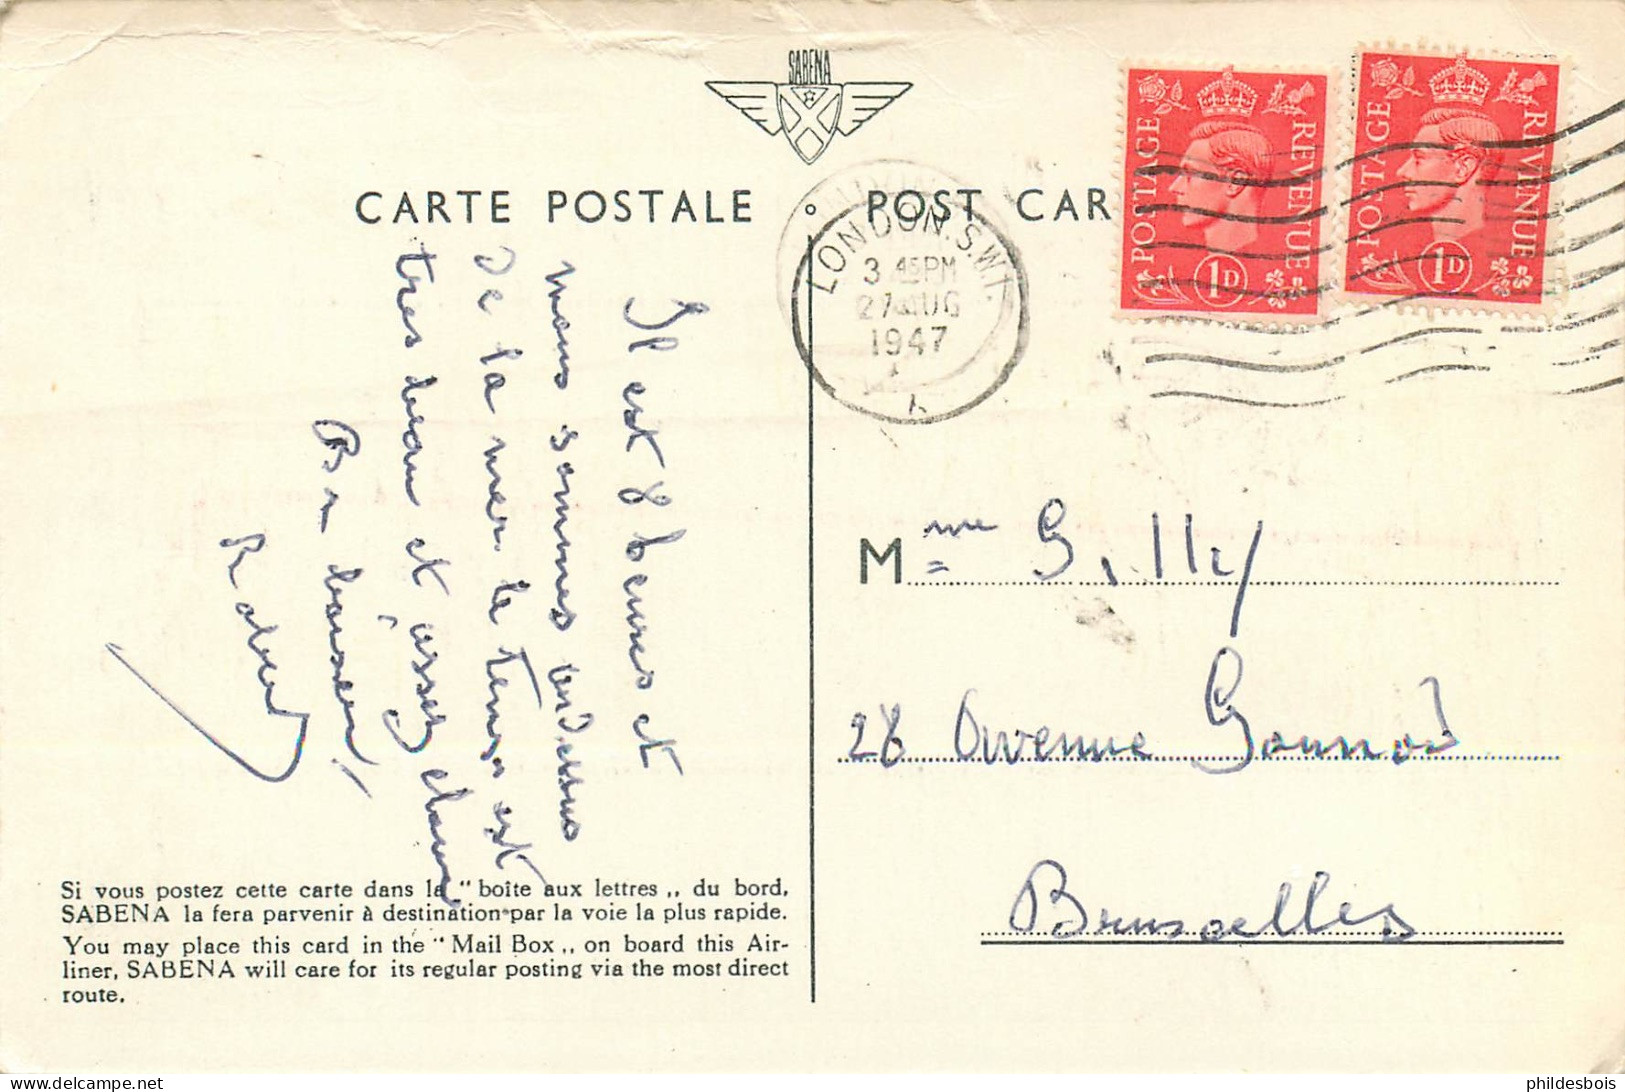 SABENA
CARTE POSTALE
POST CAR
POSTAGE REVENUE
1D
POSTAGE REVENUE
1D
LONDON. S.W.1.
3 45 PM
27 AUG
1947
Il est 8 heures et
nous sommes au dessus
de la mer. le temps est
très beau et assez clair
Bon baisers
Robert
Mme Gilly
28 Avenue Gounod
Bruxelles
Si vous postez cette carte dans la "boîte aux lettres,, du bord,
SABENA la fera parvenir à destination par la voie la plus rapide.
You may place this card in the "Mail Box,, on board this Air-
liner, SABENA will care for its regular posting via the most direct
route.
www.delcampe.net
phildesbois